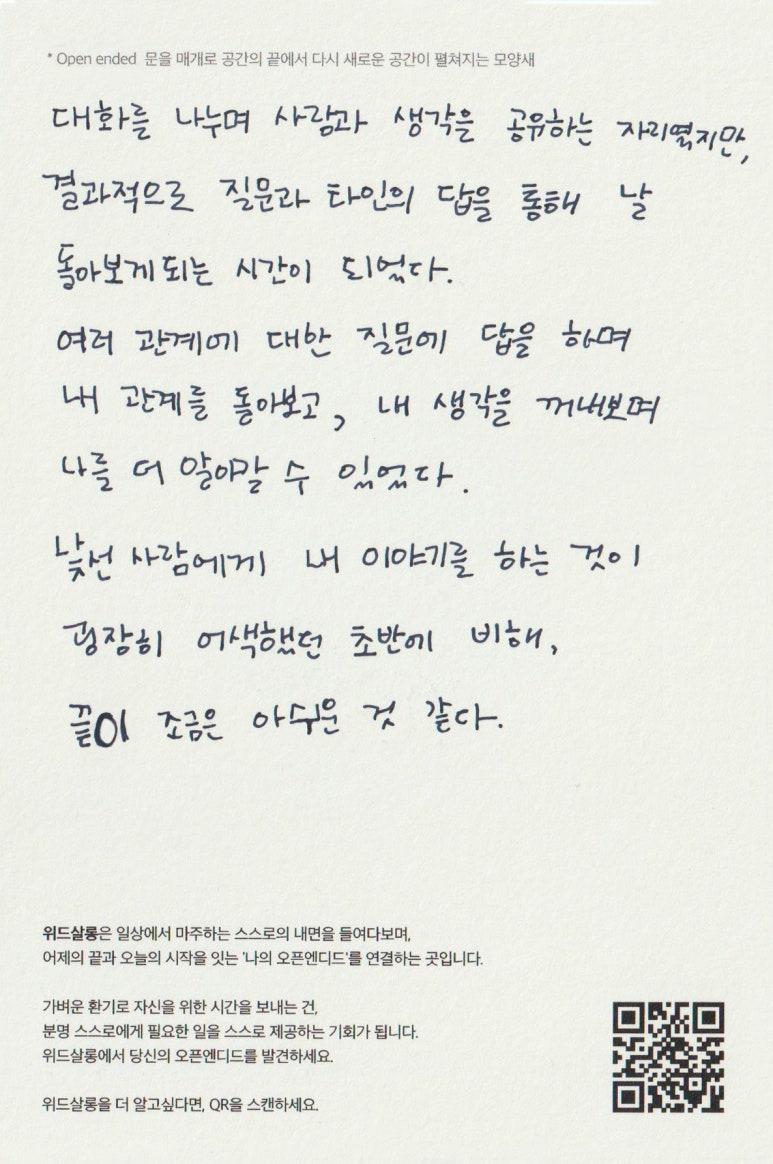 * Open ended 문을 매개로 공간의 끝에서 다시 새로운 공간이 펼쳐지는 모양새
대화를 나누며 사람과 생각을 공유하는 자리였지만,
결과적으로 질문과 타인의 답을 통해 날
돌아보게 되는 시간이 되었다.
여러 관계에 대한 질문에 답을 하며
내 관계를 돌아보고, 내 생각을 꺼내보며
나를 더 알아갈 수 있었다.
낯선 사람에게 내 이야기를 하는 것이
굉장히 어색했던 초반에 비해,
끝이 조금은 아쉬운 것 같다.
위드살롱은 일상에서 마주하는 스스로의 내면을 들여다보며,
어제의 끝과 오늘의 시작을 잇는 '나의 오픈엔디드'를 연결하는 곳입니다.
가벼운 환기로 자신을 위한 시간을 보내는 건,
분명 스스로에게 필요한 일을 스스로 제공하는 기회가 됩니다.
위드살롱에서 당신의 오픈엔디드를 발견하세요.
위드살롱을 더 알고싶다면, QR을 스캔하세요.